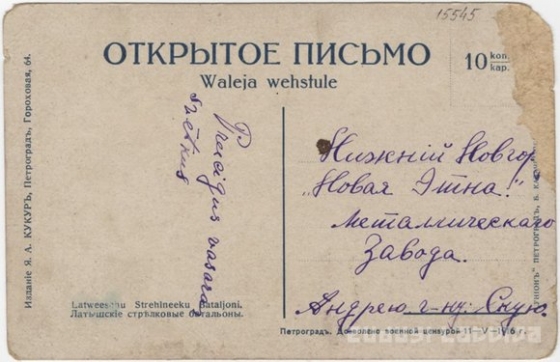 15545
ОТКРЫТОЕ ПИСЬМО
Waleja wehstule
10 коп.
kap.
Priecigus vasara
svētkus
Нижній Новгор
„Новая Этна“
Металическаго
Завода.
Андрею г-ну
Latweeschu Strehlneeku Bataljoni.
Латышскіе стрѣлковые батальоны.
Изданіе Я. А. КУКУРЪ, Петроградъ, Гороховая, 64.
Петроградъ. Дозволено военной цензурой 11—V—1916 г.
ПЕТРОГРАДЪ,